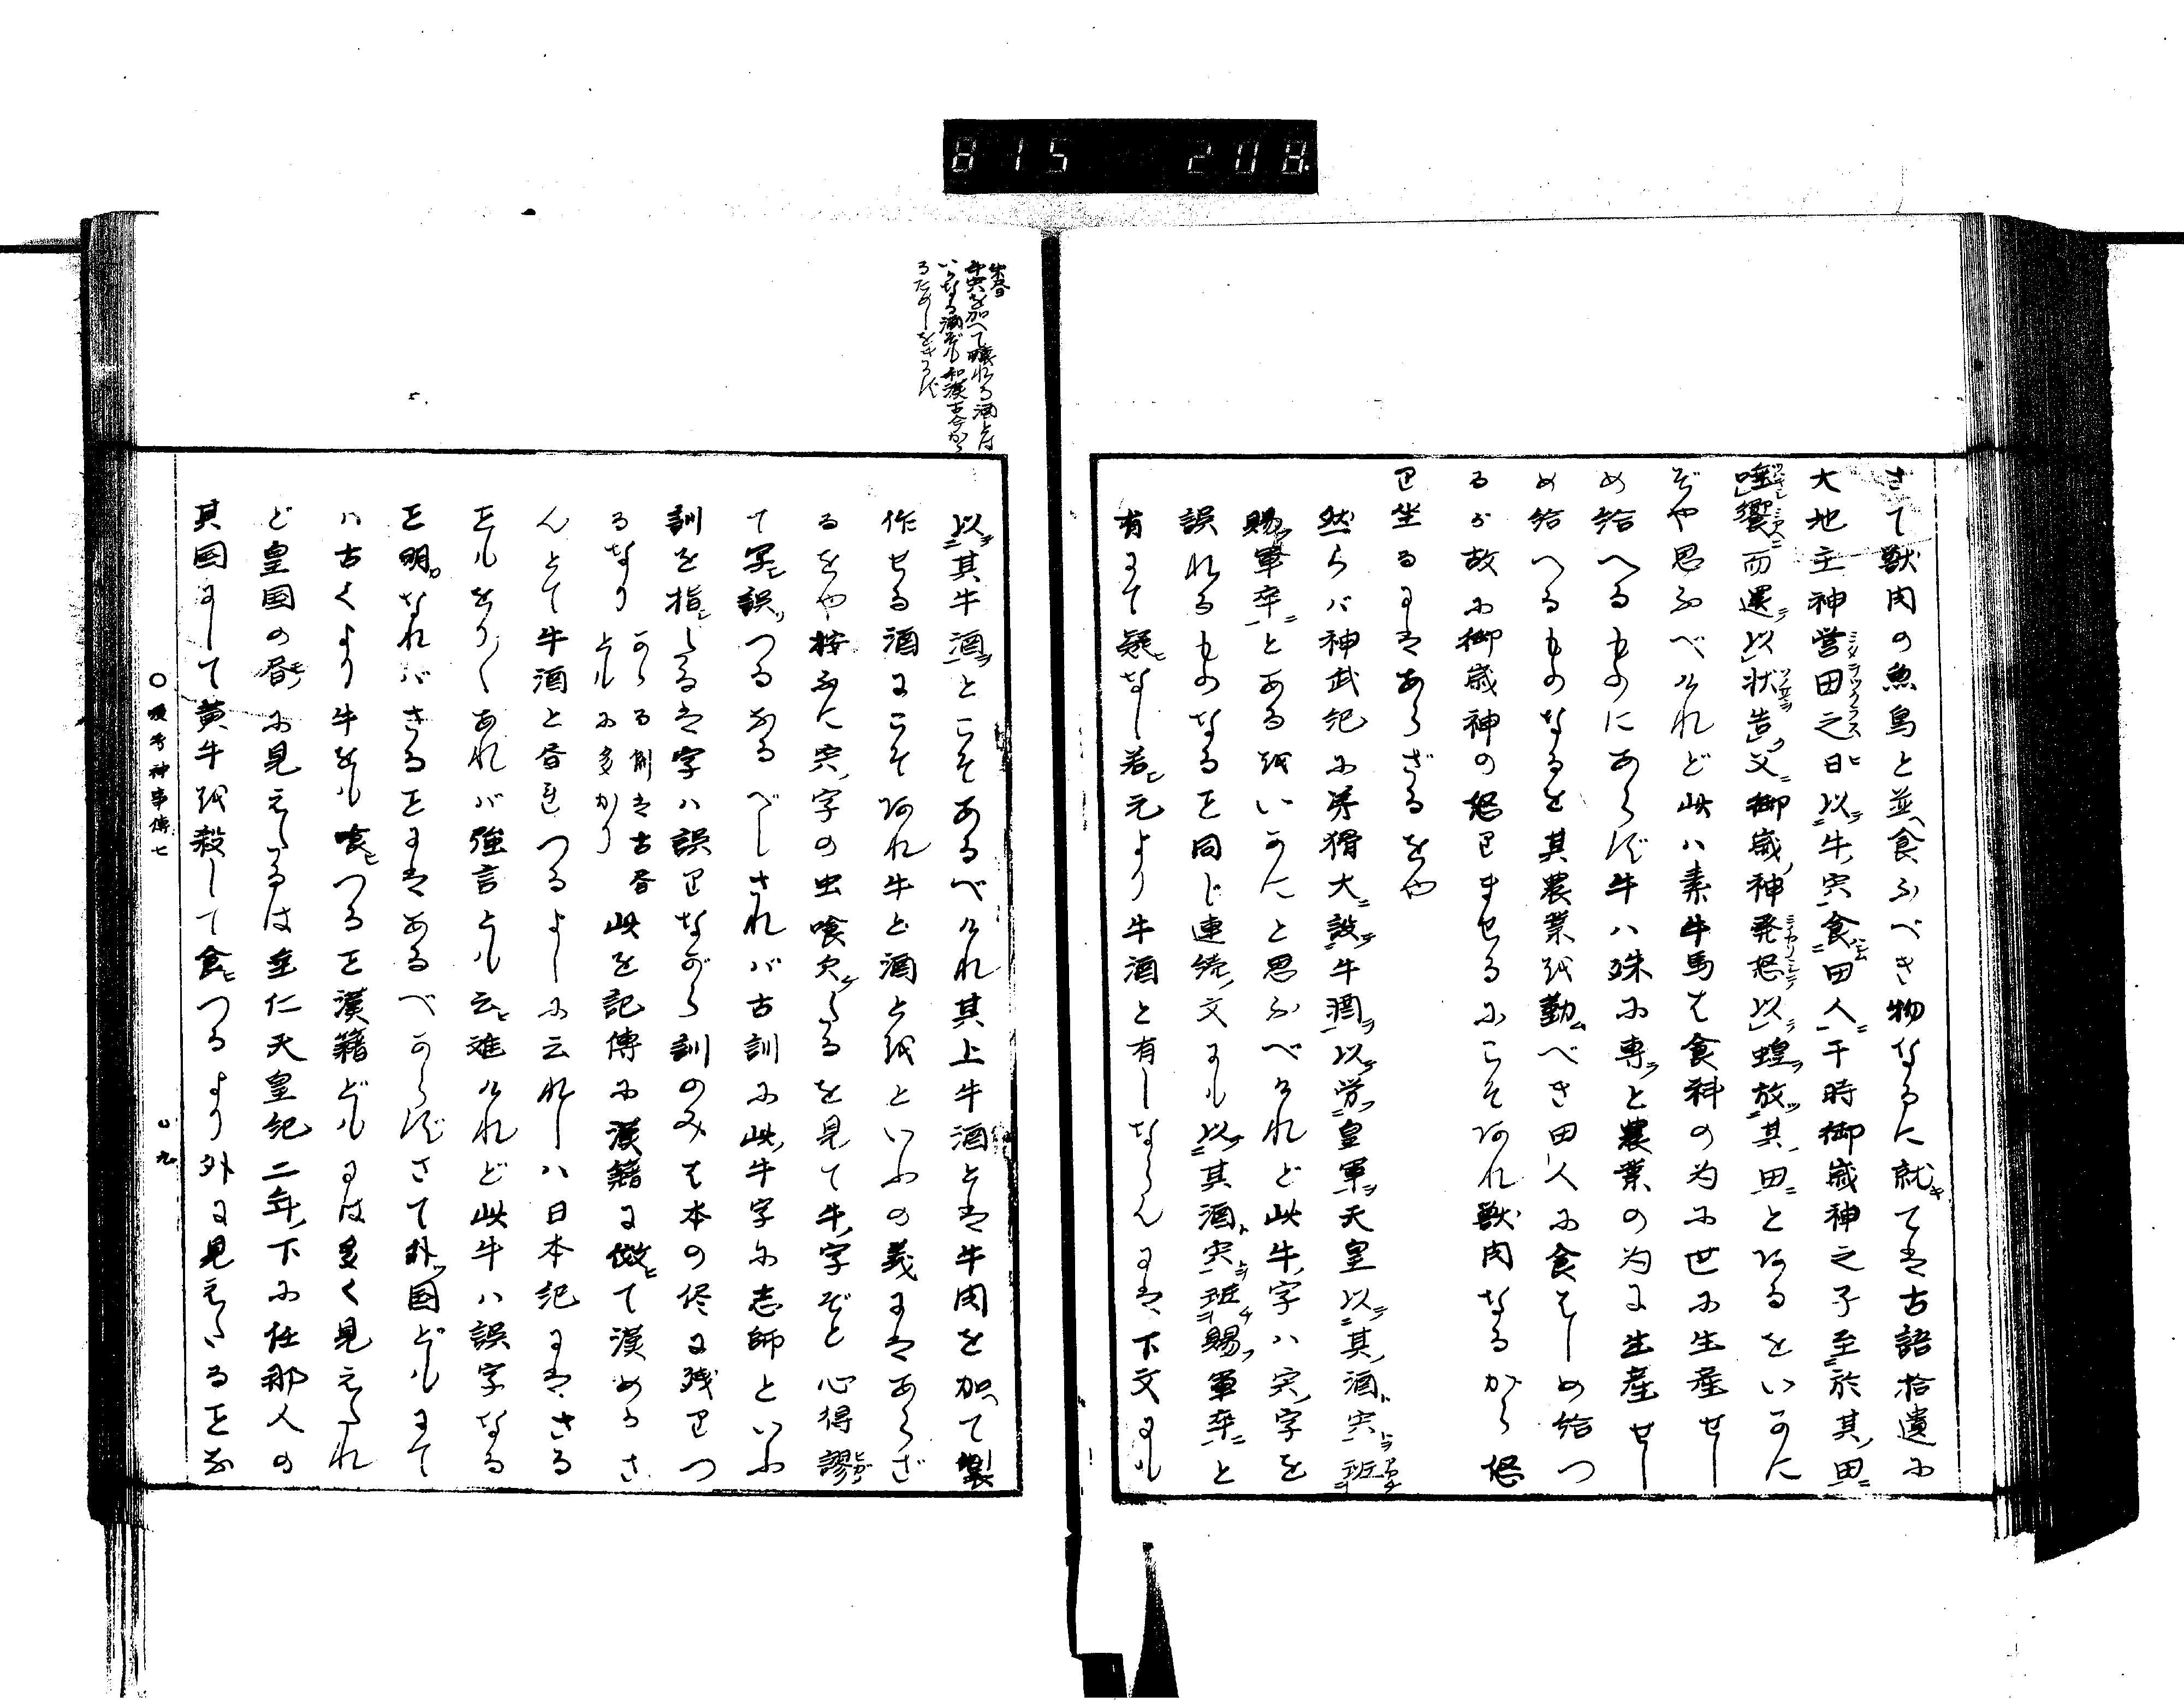 815 208
さて獣肉の魚鳥と並食ふべき物なるに就てハ古語拾遺に
大地主神営田之日以牛宍食田人于時御歳神之子至於其田
唾饗而還以状告父御歳神発怒以蝗放其田とあるをいかに
ぞや思ふべけれど此ハ素牛馬は食料の為に世に生産せし
め給へるものにあらず牛ハ殊に専と農業の為に生産せし
め給へるものなるを其農業を勤べき田人に食はしめ給つ
るが故に御歳神の怒りませるにこそあれ獣肉なるから怒
り坐るにはあらざるをや
然らバ神武紀に弟猾大設牛酒以労皇軍天皇以其酒宍班
賜軍卒とあるをいかにと思ふべけれど此牛字ハ宍字を
誤れるものなるを同じ連続文にも以其酒宍班賜軍卒と
有にて疑なし若元より牛酒と有しならんにハ下文にも
以其牛酒とこそあるべけれ其上牛酒とハ牛肉を加て製
作せる酒にこそあれ牛と酒とをといふの義にハあらざ
るをや按ふに宍字の虫喰欠たるを見て牛字ぞと心得謬
て写誤つるなるべしされバ古訓に此牛字に志師といふ
訓を指しるは字ハ誤りながら訓のみは本の侭に残りつ
るなり かゝる例は古書ともに多かり 此を記傳に漢籍に倣て漢めかさ
んとて牛酒と書れつるよしに云れしハ日本紀にハさる
ともをり〱あれバ強言とも云難けれど此牛ハ誤字なる
と明なれバさるとにハあるべからずさて外国どもにて
ハ古くより牛をも喰つると漢籍どもには多く見えたれ
ど皇国の書に見えたるは垂仁天皇紀二年下に任那人の
其国にして黄牛を殺して食つるより外に見えたるとな
神事傳七
九
牛宍を加へて醸れる酒とは
いかなる酒ぞも和漢古今かゝ
るためしをきかず